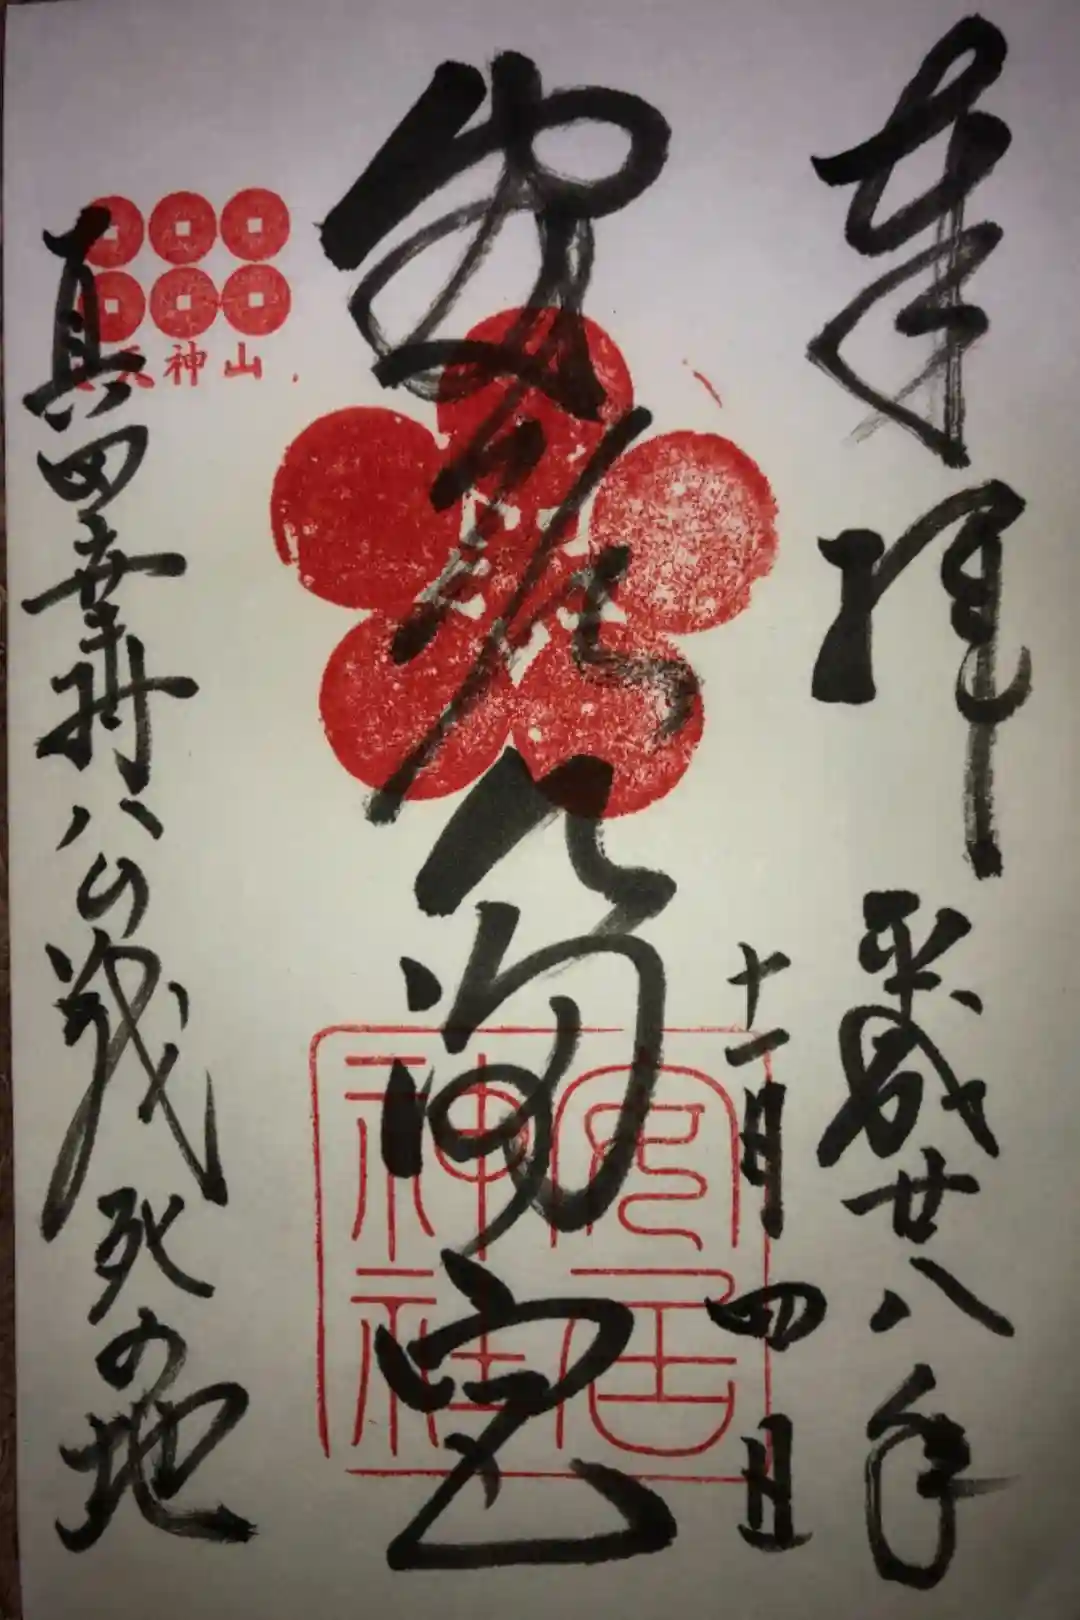 奉拝
平成廿八年
十一月四日
安居天満宮
安居神社
天神山
真田幸村公戦死の地